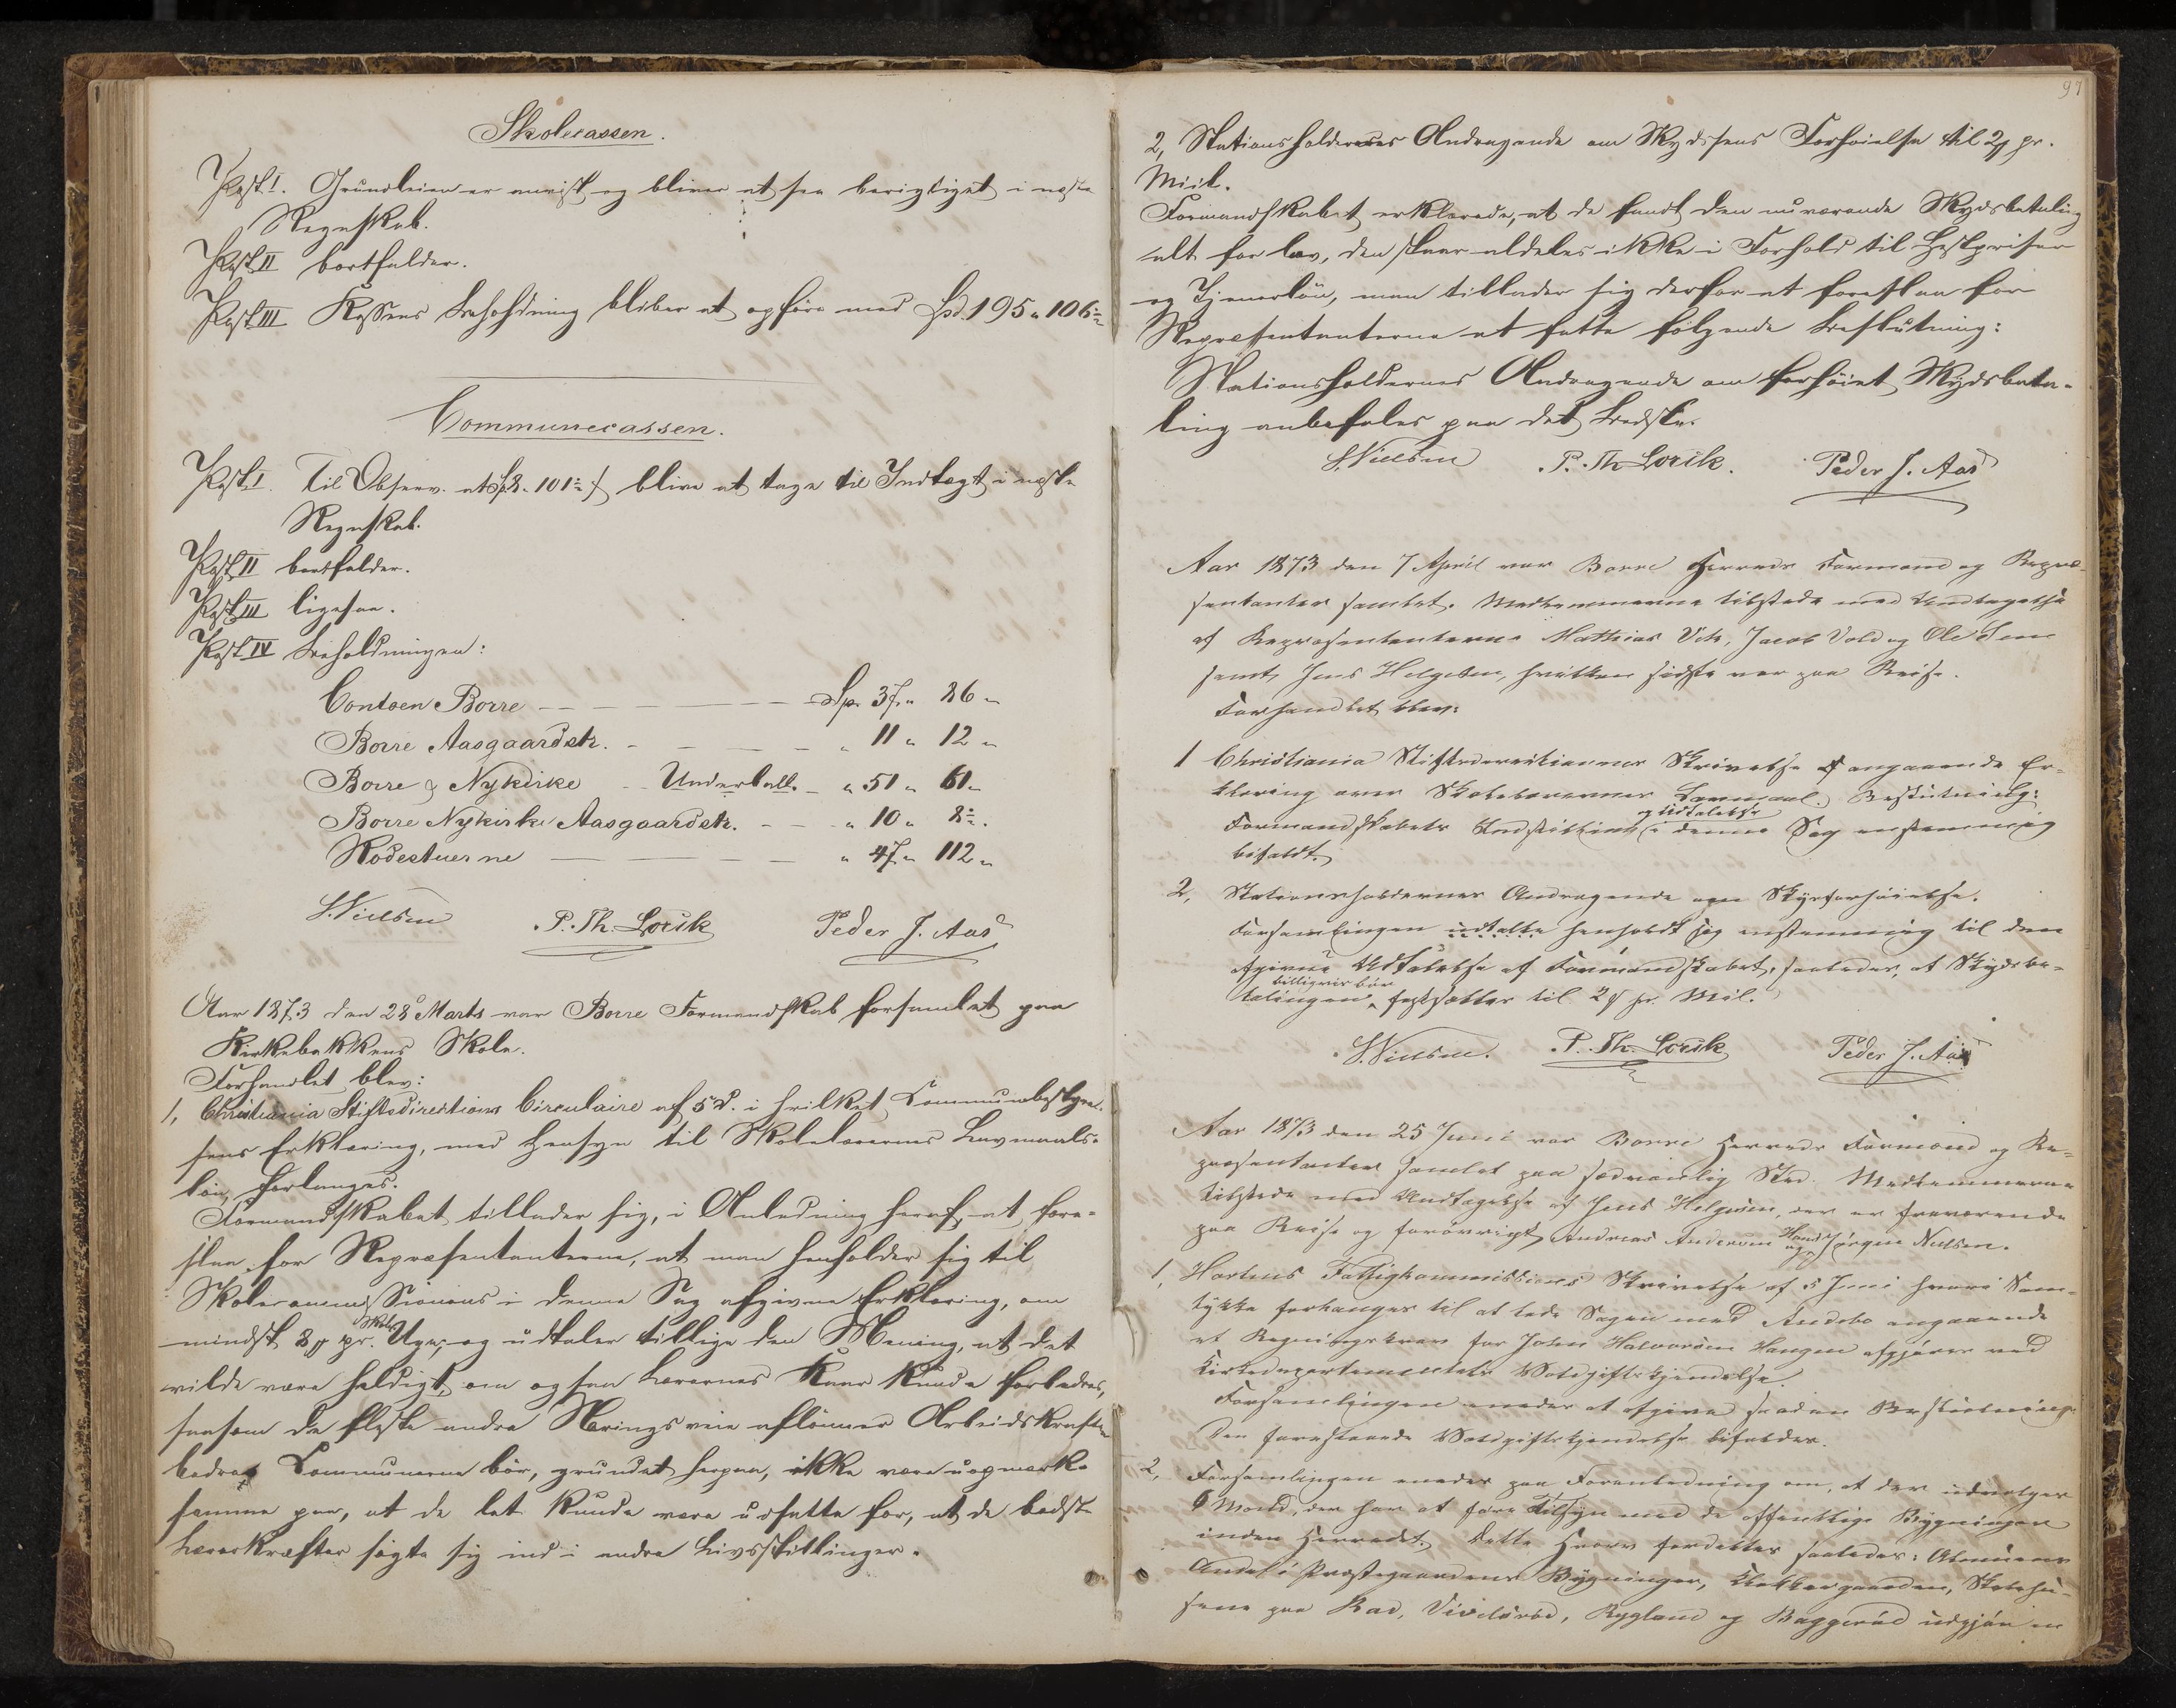 Skolecassen.
Post I. Grundleien er anvist og bliver at see berigtiget i næste
Regnskab.
Post II bortfalder.
Post III Kassens Beholdning bliver at opføre med Spd. 195 " 106
Communecassen.
Post I. Til Observ. at blive at tage til Indtægt i næste
Regnskab.
Post II bortfalder.
Post III ligesaa.
Post IV Beholdningen:
Contoen Borre - - - Sp. 37 " 86 "
Borre Aasgaardstr. - - - " 11 " 12 "
Borre & Nykirke - Underball. - " 51 " 61 "
Borre Nykirke Aasgaardstr. - - " 10 " 8 "
Rodestuerne - - - " 47 " 112 "
S. Nielsen P. Th. Lorik Peder J. Aas
Aar 1873 den 28 Marts var Borre Formandskab forsamlet paa
Kirkebakkens Skole.
Forhandlet blev:
1, Christiania Stiftsdirections Circulaire af 5 d. i hvilket Communebestyrel-
sens Erklæring, med Hensyn til Skolelærernes Lavmaals-
løn, forlanges.
Formandskabet tillader sig, i Anledning heraf, at fore-
slaa for Repræsentanterne, at man henholder sig til
Skolecommissionens i denne Sag afgivne Erklæring, om
mindst pr. Skole Uge, og udtaler tillige den Mening, at det
vilde være heldigt, om ogsaa Lærernes Kaar kunde forbedres,
saasom de fleste andre Næringsveie aflønner Arbeidskraften
bedre, Communerne bør, grundet herpaa, ikke være uopmærk-
somme paa, at de let kunde være udsatte for, at de bedste
Lærerkræfter søgte sig ind i andre Livsstillinger.
97
2, Stationsholdernes Andragende om Skydsens Forhøielse til pr.
Miil.
Formandskabet erklærede, at de fandt den nuværende Skydsbetaling
alt for lav, den staar aldeles ikke i Forhold til Hestpriser
og Tjenerløn, man tillader sig derfor at foreslaa for
Repræsentanterne at fatte følgende Beslutning:
Stationsholdernes Andragende om forhøiet Skydsbeta-
ling anbefales paa det Bedste.
S. Nielsen P. Th. Lorik. Peder J. Aas
Aar 1873 den 7 April var Borre Herreds Formænd og Repræ-
sentanter samlet. Medlemmerne tilstede med Undtagelse
af Repræsentanterne Mathias Vik, Jacob Vold og Ole Sem
samt Jens Helgesen, hvilken sidste var paa Reise.
Forhandlet blev:
1 Christiania Stiftsdirections Skrivelse angaaende Er-
klæring over Skolelærernes Lavmaal. Beslutning:
Formandskabets Indstilling og Udtalelse i denne Sag enstemmig
bifaldt.
2, Stationsholdernes Andragende om Skydsforhøielse.
Forsamlingen udtalte henholdt sig enstemmig til den
afgivne Udtalelse af Formandskabet, saaledes, at Skydsbe-
talingen billigvis bør fastsættes til pr. Mil.
S. Nielsen. P. Th. Lorik Peder J. Aas
Aar 1873 den 25 Juni var Borre Herreds Formænd og Re-
præsentanter samlet paa sædvanlig Sted. Medlemmerne
tilstede med Undtagelse af Jens Helgesen, der er fraværende
paa Reise og forøvrigt Andreas Andersen og Jørgen Nielsen.
1, Hortens Fattigkommissions Skrivelse af 5 Juni hvori Sam-
tykke forlanges til at lade Sagen med Andebo angaaende
et Regningskrav for John Halvorsen Haugen afgjøres ved
Kirkedepartementets Voldgiftskjendelse.
Forsamlingen eneder at afgive saadan Beslutning
Den foreslaaede Voldgiftskjendelse bifaldes.
2, Forsamlingen eneder paa Foranledning om, at der udvælges
6 Mænd, der har at føre Tilsyn med de offentlige Bygninger
inden Herredet. Dette Hverv fordeles saaledes: Almuens
Andel i Præstegaardens Bygninger, Klokkergaarden, Skolehu-
sene paa Rød, Viulsrød, Rygland og Baggerød udgjør en